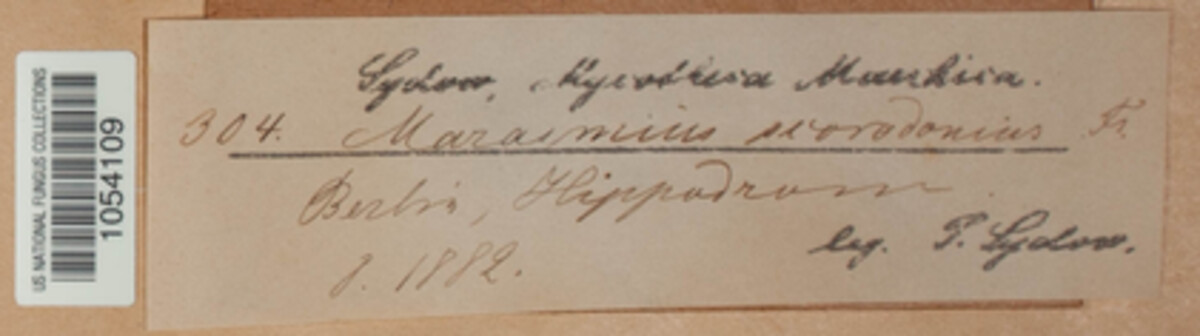 US NATIONAL FUNGUS COLLECTIONS
1054109
Sydow, Mycotheca Marchica.
304. Marasmius scorodonius Fr.
Berlin, Hippodrom
8. 1882.
leg. P. Sydow.